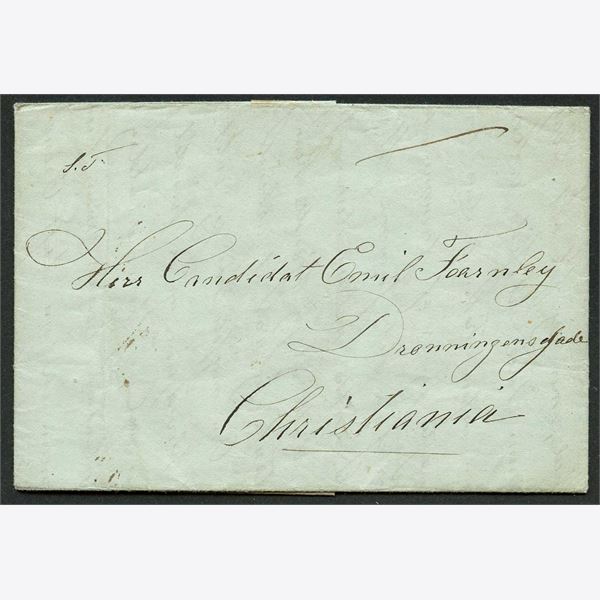 S. T.
Herr Candidat Emil Fearnley
Dronningensgade
Christiania